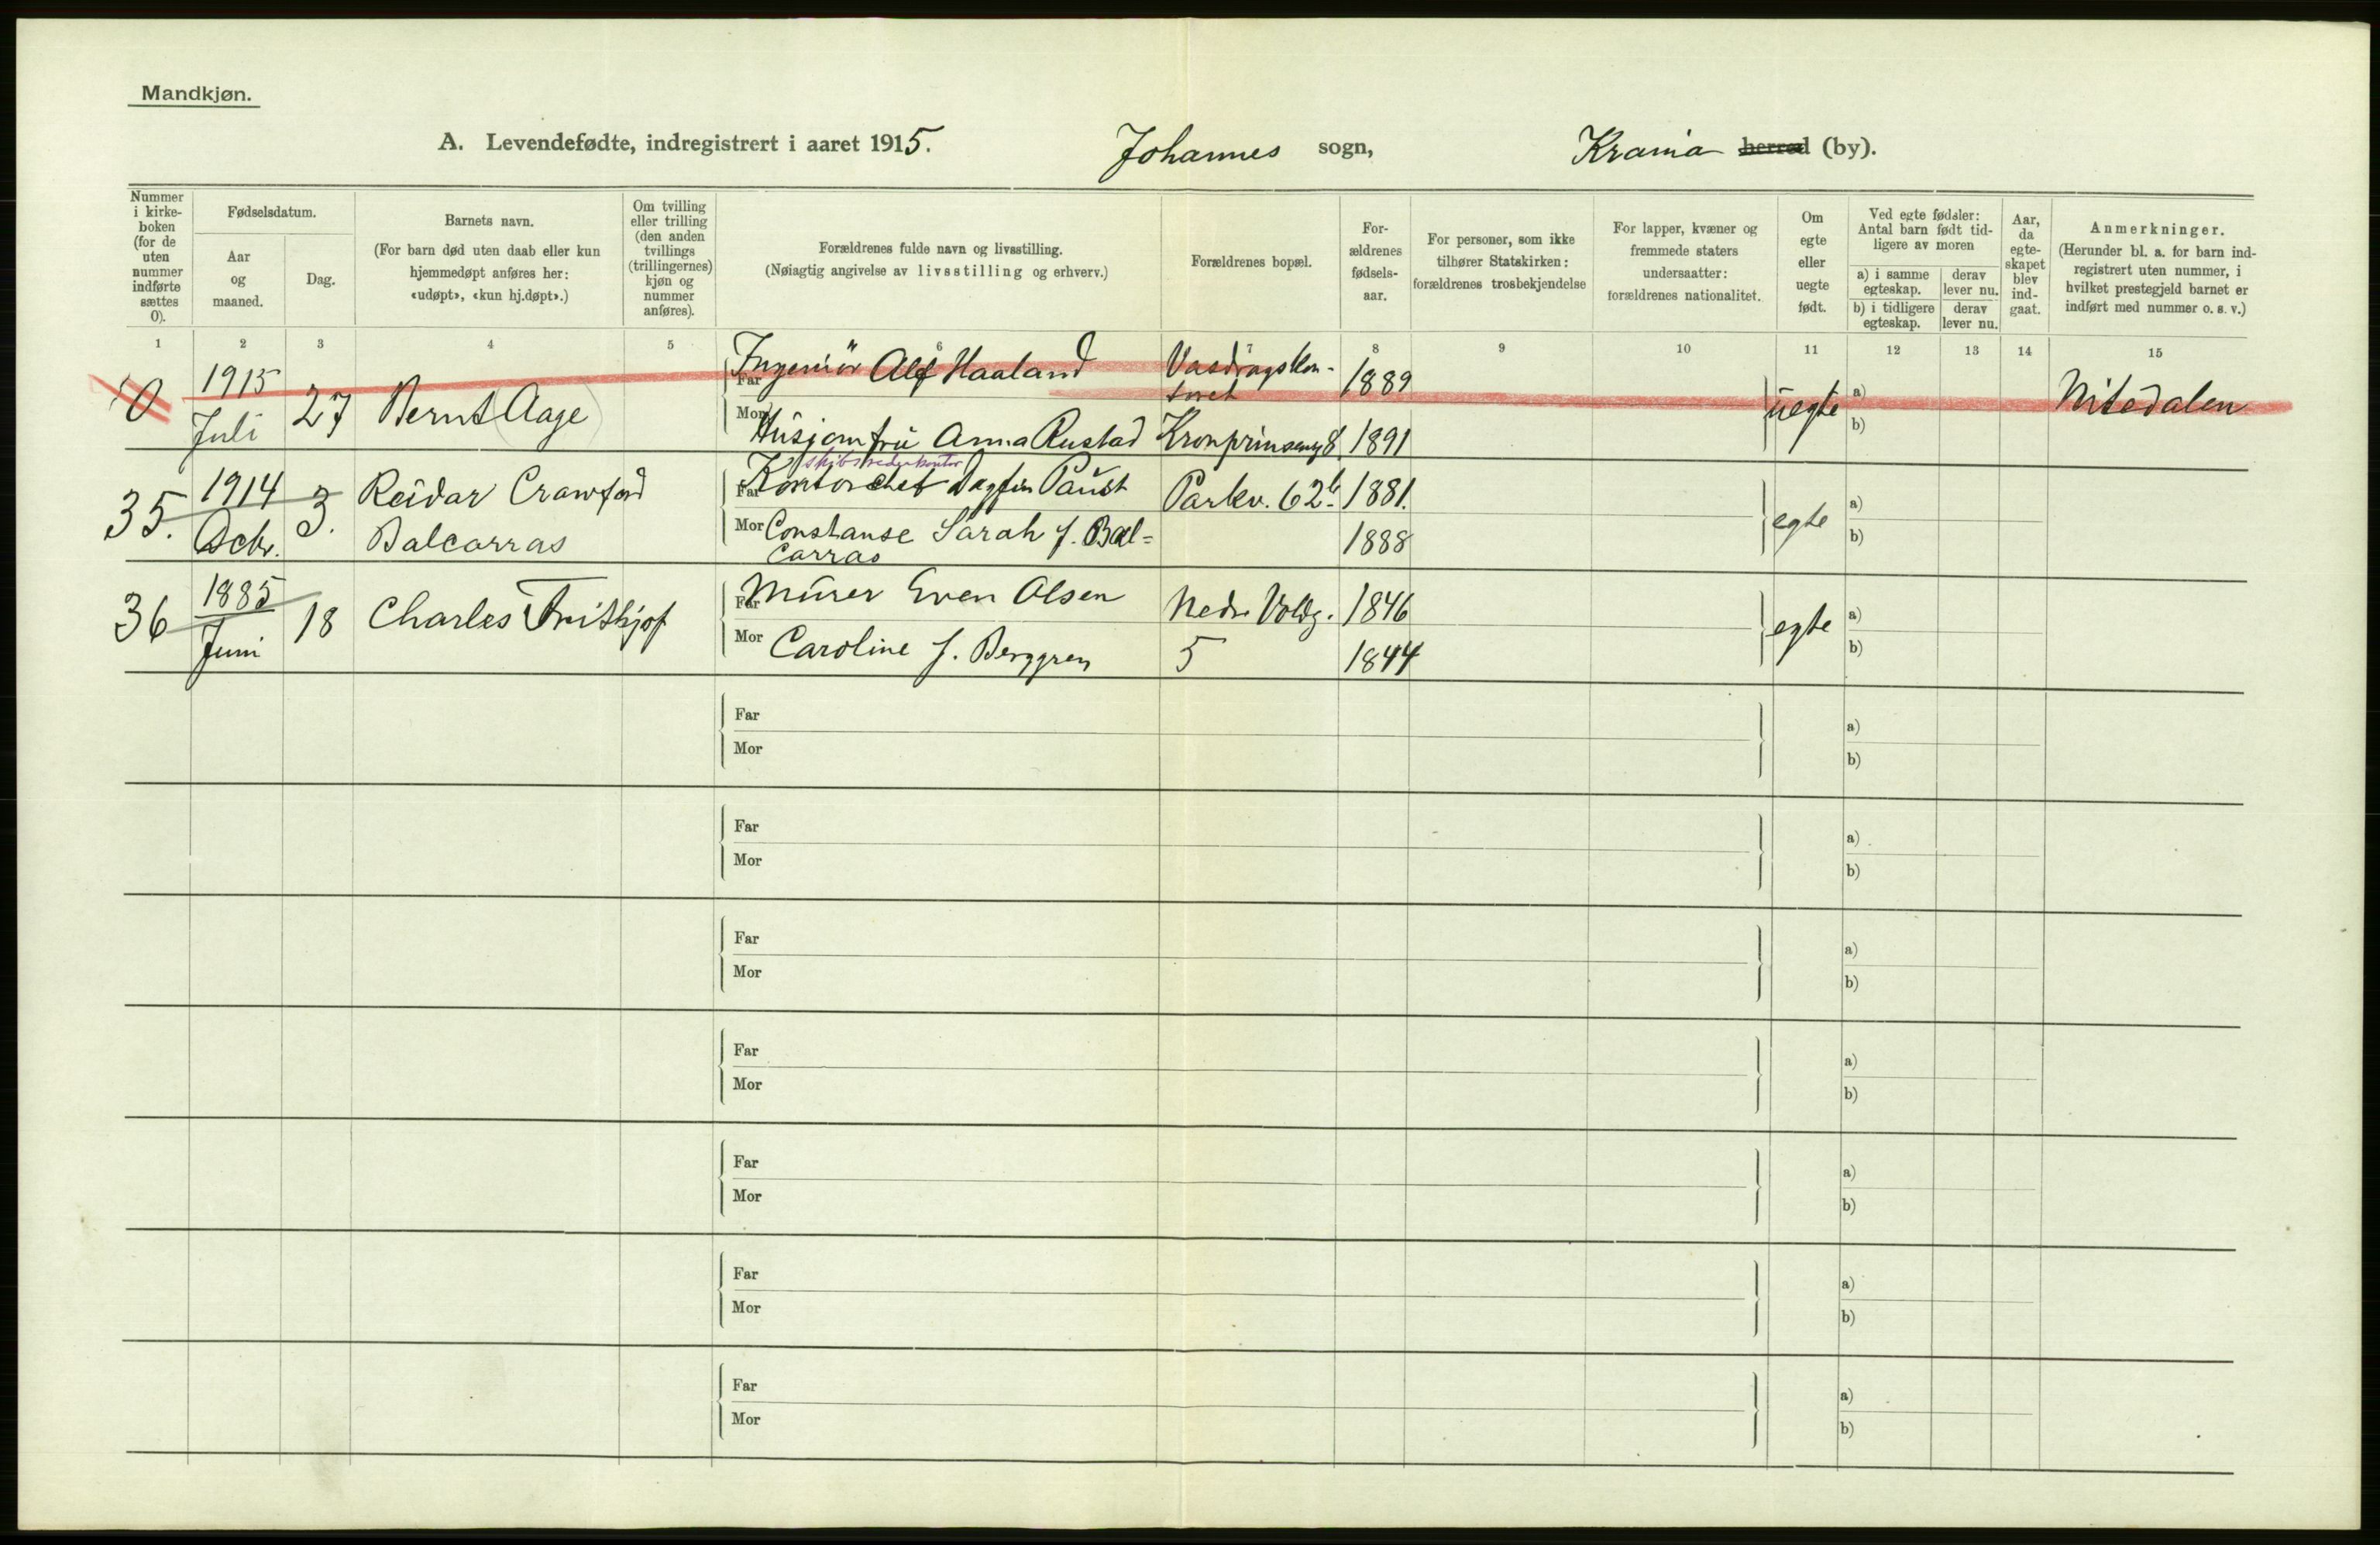 Mandkjøn.
A. Levendefødte, indregistrert i aaret 1915. Johannes sogn, Krania herred (by).
Nummer i kirke-boken (for de uten nummer indførte sættes 0).
Fødselsdatum.
Aar og maaned.
Dag.
Barnets navn.
(For barn død uten daab eller kun hjemmedøpt anføres her: «udøpt», «kun hj.døpt».)
Om tvilling eller trilling (den anden tvillings (trillingernes) kjøn og nummer anføres).
Forældrenes fulde navn og livsstilling.
(Nøiagtig angivelse av livsstilling og erhverv.)
Forældrenes bopæl.
For-ældrenes fødsels-aar.
For personer, som ikke tilhører Statskirken: forældrenes trosbekjendelse
For lapper, kvæner og fremmede staters undersaatter: forældrenes nationalitet.
Om egte eller uegte født.
Ved egte fødsler: Antal barn født tid-ligere av moren
a) i samme egteskap.
derav lever nu.
b) i tidligere egteskap.
derav lever nu.
Aar, da egte-skapet blev ind-gaat.
Anmerkninger.
(Herunder bl. a. for barn ind-registrert uten nummer, i hvilket prestegjeld barnet er indført med nummer o. s. v.)
1 2 3 4 5 6 7 8 9 10 11 12 13 14 15
0 1915 Juli 27 Bernt (Aage)
Far Ingeniör Alf Haaland Vasdragskon-toret 1889
Mor Husjomfru Anna Rustad Kronprinseng 8. 1891
uegte a) b) Nitedalen
35. 1914 Octbr. 3. Reidar Crawford Balcarras
skibsrederkontor
Far Kontorchef Dagfin Paust Parkv. 62b 1881.
Mor Constanse Sarah f. Bal=carras 1888
egte a) b)
36 1885 Juni 18 Charles Frithjof
Far Murer Even Olsen Nedre Voldg. 5 1846
Mor Caroline f. Berggren 1844
egte a) b)
Far a)
Mor b)
Far a)
Mor b)
Far a)
Mor b)
Far a)
Mor b)
Far a)
Mor b)
Far a)
Mor b)
Far a)
Mor b)